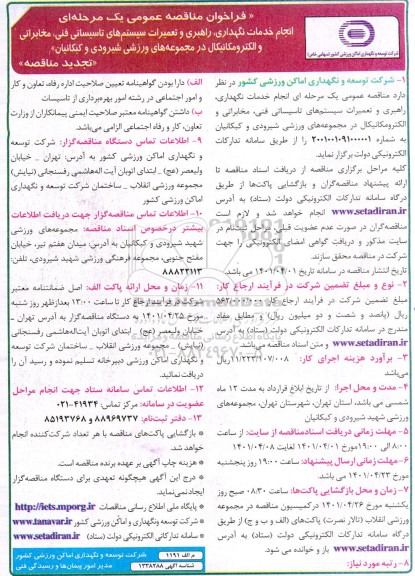 « فراخوان مناقصه عمومی یک مرحله‌ای
انجام خدمات نگهداری، راهبری و تعمیرات سیستم‌های تاسیساتی فنی، مخابراتی
و الکترومکانیکال در مجموعه‌های ورزشی شیرودی و کبکانیان»
«تجدید مناقصه»
شرکت توسعه و نگهداری اماکن ورزشی کشور (سهامی خاص)
۱- شرکت توسعه و نگهداری اماکن ورزشی کشور در نظر
دارد مناقصه عمومی یک مرحله ای انجام خدمات نگهداری،
راهبری و تعمیرات سیستم‌های تاسیساتی فنی، مخابراتی و
الکترومکانیکال در مجموعه‌های ورزشی شیرودی و کبکانیان
به شماره را از طریق سامانه تدارکات
الکترونیکی دولت برگزار نماید.
کلیه مراحل برگزاری مناقصه از دریافت اسناد مناقصه تا
ارائه پیشنهاد مناقصه‌گران و بازگشایی پاکت‌ها از طریق
درگاه سامانه تدارکات الکترونیکی دولت (ستاد) به آدرس
www.setadiran.ir انجام خواهد شد و لازم است
مناقصه‌گران در صورت عدم عضویت قبلی، مراحل ثبت‌نام در
سایت مذکور و دریافت گواهی امضای الکترونیکی را جهت
شرکت در مناقصه محقق سازند.
تاریخ انتشار مناقصه در سامانه تاریخ ۱۴۰۱/۰۴/۰۱ می باشد.
۲- نوع و مبلغ تضمین شرکت در فرآیند ارجاع کار:
مبلغ تضمین شرکت در فرآیند ارجاع کار
ریال (پانصد و شصت و دو میلیون ریال) و مطابق مفاد
مندرج در سامانه تدارکات الکترونیکی دولت (ستاد) به آدرس
www.setadiran.ir و متن اسناد مناقصه می‌باشد.
۳- برآورد هزینه اجرای کار: ۱۱/۲۲۳/۱۰۷/۰۰۸ ریال
۴- مدت و محل اجرا: از تاریخ ابلاغ قرارداد به مدت ۱۲ ماه
شمسی می باشد، استان تهران، شهرستان تهران، مجموعه‌های
ورزشی شهید شیرودی و کبکانیان
۵- مهلت زمانی دریافت اسناد مناقصه از سایت: از ساعت
۸:۰۰ الی ۱۹:۰۰ مورخ ۱۴۰۱/۰۴/۰۱ لغایت ۱۴۰۱/۰۴/۰۸
۶- مهلت زمانی ارسال پیشنهاد: ساعت ۱۹:۰۰ روز پنجشنبه
مورخ ۱۴۰۱/۰۴/۲۳ می باشد.
۷- زمان و محل بازگشایی پاکت‌ها: ساعت ۰۸:۳۰ صبح روز
یکشنبه مورخ ۱۴۰۱/۰۴/۲۶ درکمیسیون مناقصه در مجموعه
ورزشی انقلاب (تالار نصرت) پاکت‌های (الف و ب و ج) از طریق
درگاه سامانه تدارکات الکترونیکی دولت (ستاد) به آدرس
www.setadiran.ir باز و خوانده می شود.
۸- رتبه مورد نیاز:
الف) دارا بودن گواهینامه تعیین صلاحیت اداره رفاه، تعاون و کار
و امور اجتماعی در رشته امور بهره‌برداری از تاسیسات
ب) داشتن گواهینامه معتبر صلاحیت ایمنی پیمانکاران از وزارت
تعاون، کار و رفاه اجتماعی الزامی می‌باشد.
۹- اطلاعات تماس دستگاه مناقصه‌گزار: شرکت توسعه
و نگهداری اماکن ورزشی کشور به آدرس: تهران _ خیابان
ولیعصر (عج) _ ابتدای اتوبان آیت اله‌هاشمی رفسنجانی (نیایش)
مجموعه ورزشی انقلاب _ ساختمان شرکت توسعه و نگهداری
اماکن ورزشی کشور
۱۰- اطلاعات تماس مناقصه‌گزار جهت دریافت اطلاعات
بیشتر درخصوص اسناد مناقصه: مجموعه‌های ورزشی
شهید شیرودی و کبکانیان به آدرس: میدان هفتم تیر، خیابان
مفتح جنوبی، مجموعه فرهنگی ورزشی شهید شیرودی، تلفن:
۸۸۸۲۳۱۱۳
۱۱- زمان و محل ارائه پاکت الف: اصل ضمانتنامه معتبر
شرکت در فرآیند ارجاع کار تا ساعت ۱۳:۰۰ بعدازظهر روز شنبه
مورخ ۱۴۰۱/۰۴/۲۵ به دستگاه مناقصه‌گزار به آدرس تهران _
خیابان ولیعصر (عج) _ ابتدای اتوبان آیت‌اله‌هاشمی رفسنجانی
(نیایش) _ مجموعه ورزشی انقلاب _ ساختمان شرکت توسعه
و نگهداری اماکن ورزشی دبیرخانه تسلیم نموده و رسید آن را
دریافت نمائید.
۱۲- اطلاعات تماس سامانه ستاد جهت انجام مراحل
عضویت در سامانه: مرکز تماس: ۴۱۹۳۴-۰۲۱
۱۳- دفتر ثبت‌نام: ۸۸۹۶۹۷۳۷ و ۸۵۱۹۳۷۶۸
* بازگشایی پاکت‌های مناقصه با هر تعداد شرکت‌کننده انجام
خواهد شد.
* هزینه چاپ آگهی بر عهده برنده مناقصه است.
* درج این آگهی هیچگونه تعهدی برای دستگاه مناقصه‌گزار
ایجاد نمی‌نماید.
* پایگاه ملی اطلاع رسانی مناقصات http://iets.mporg.ir
* شرکت توسعه و نگهداری اماکن ورزشی کشور www.tanavar.ir
* سامانه تدارکاتی الکترونیکی دولت (ستاد) www.setadiran.ir
م الف ۱۱۹۱
شناسه آگهی ۱۳۳۸۲۸۸
شرکت توسعه و نگهداری اماکن ورزشی کشور
مدیر امور پیمان‌ها و رسیدگی فنی